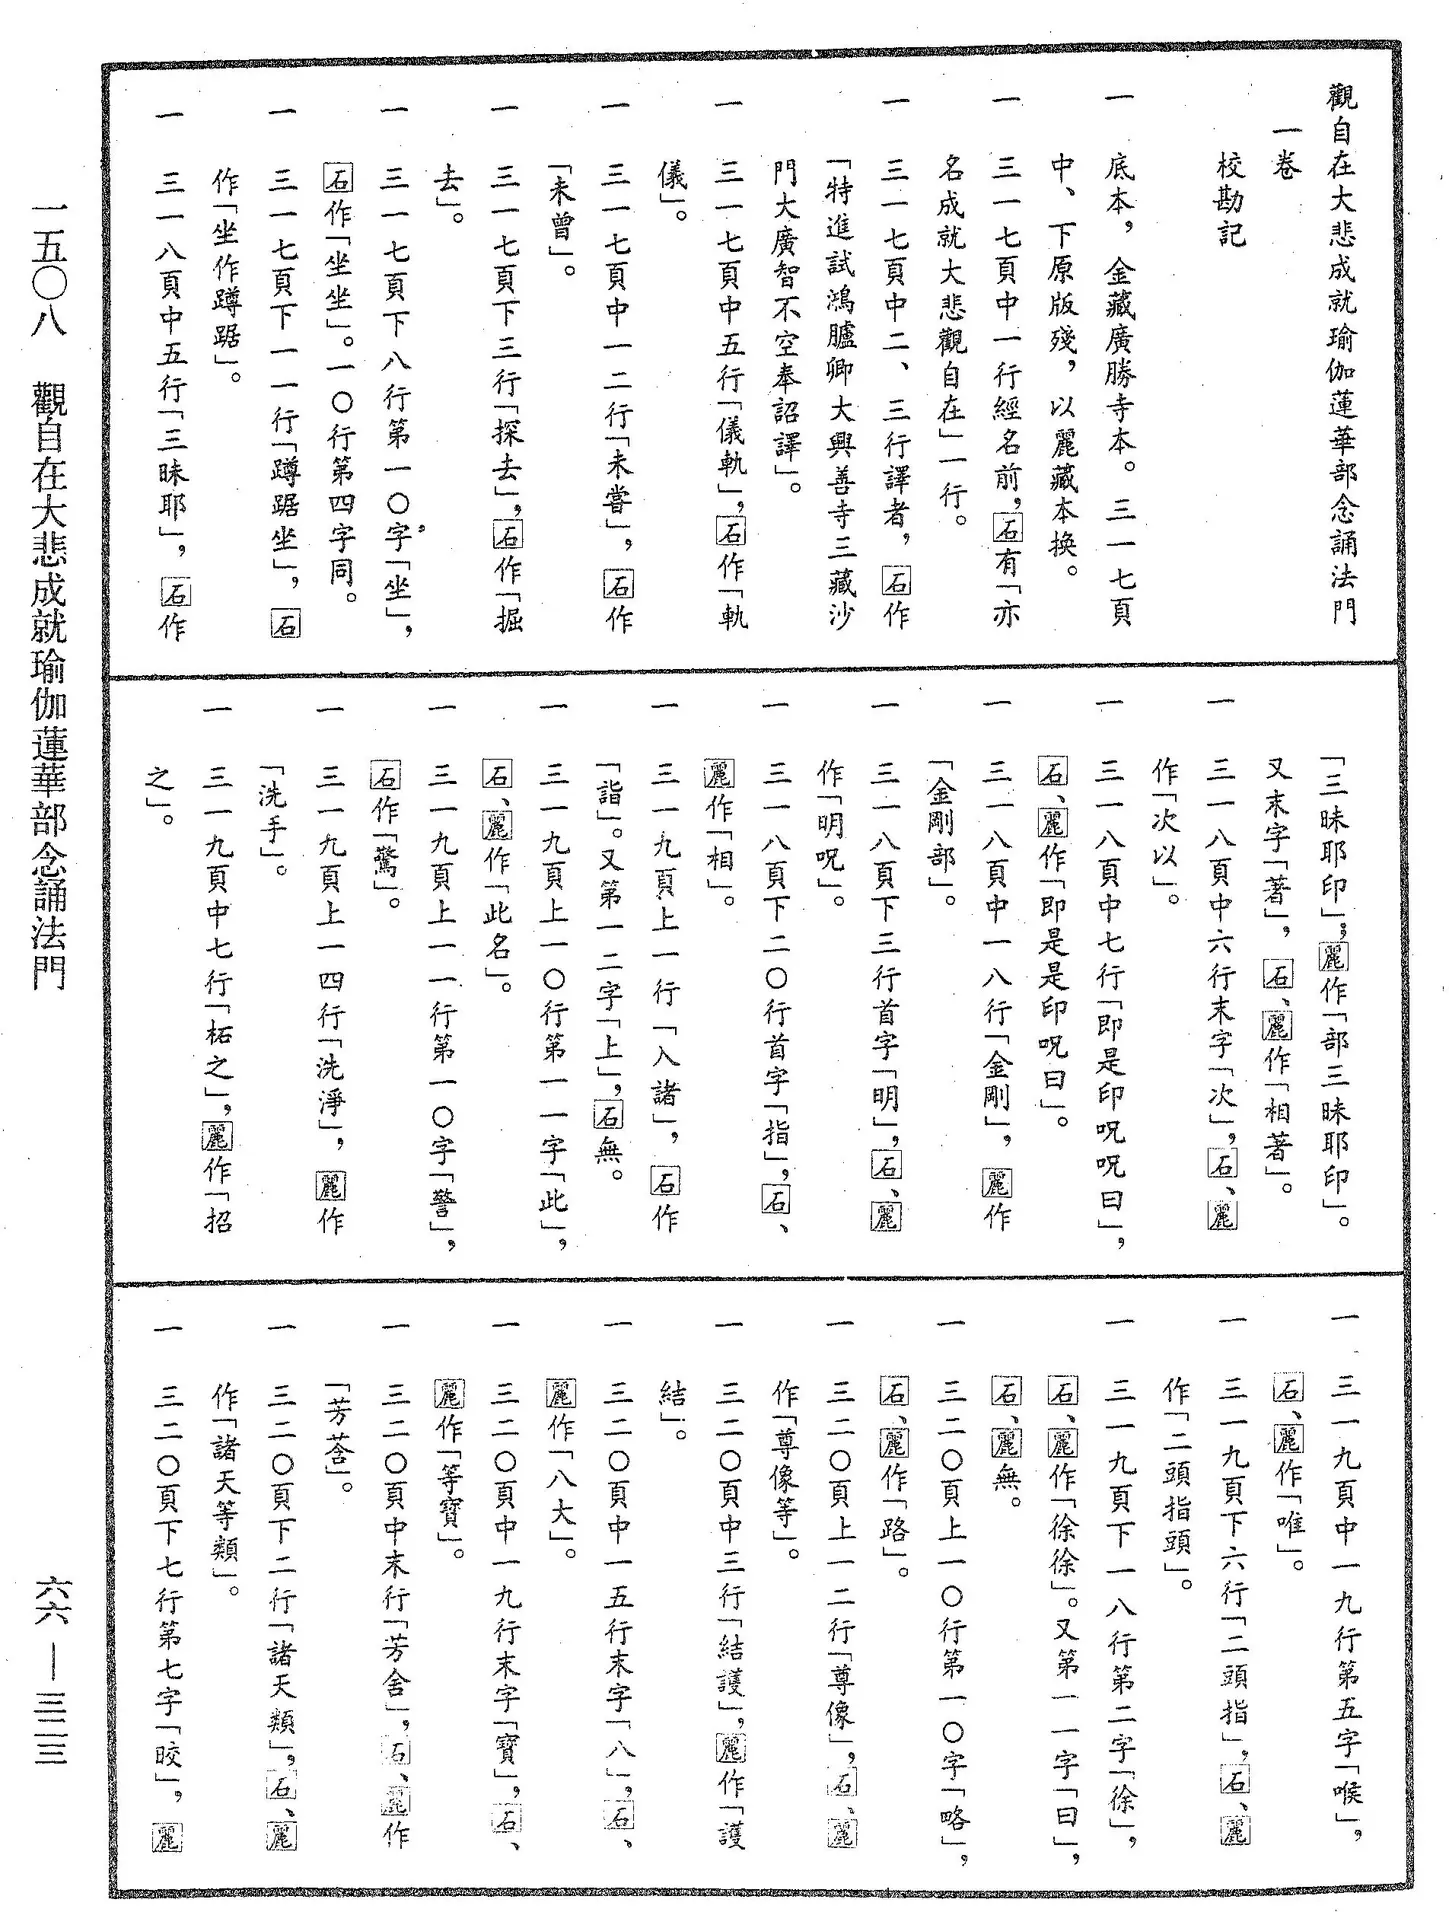 觀自在大悲成就瑜伽蓮華部念誦法門
一卷
校勘記
一　底本，金藏廣勝寺本。三一七頁
中、下原版殘，以麗藏本換。
一　三一七頁中一行經名前，石有「亦
名成就大悲觀自在」一行。
一　三一七頁中二、三行譯者，石作
「特進試鴻臚卿大興善寺三藏沙
門大廣智不空奉詔譯」。
一　三一七頁中五行「儀軌」，石作「軌
儀」。
一　三一七頁中一二行「未嘗」，石作
「未曾」。
一　三一七頁下三行「探去」，石作「掘
去」。
一　三一七頁下八行第一〇字「坐」，
石作「坐坐」。一〇行第四字同。
一　三一七頁下一一行「蹲踞坐」，石
作「坐作蹲踞」。
一　三一八頁中五行「三昧耶」，石作
「三昧耶印」；麗作「部三昧耶印」。
又末字「著」，石、麗作「相著」。
一　三一八頁中六行末字「次」，石、麗
作「次以」。
一　三一八頁中七行「即是印呪呪曰」，
石、麗作「即是是印呪曰」。
一　三一八頁中一八行「金剛」，麗作
「金剛部」。
一　三一八頁下三行首字「明」，石、麗
作「明呪」。
一　三一八頁下二〇行首字「指」，石、
麗作「相」。
一　三一九頁上一行「入諸」，石作
「詣」。又第一二字「上」，石無。
一　三一九頁上一〇行第一一字「此」，
石、麗作「此名」。
一　三一九頁上一一行第一〇字「警」，
石作「驚」。
一　三一九頁上一四行「洗淨」，麗作
「洗手」。
一　三一九頁中七行「柘之」，麗作「招
之」。
一　三一九頁中一九行第五字「喉」，
石、麗作「唯」。
一　三一九頁下六行「二頭指」，石、麗
作「二頭指頭」。
一　三一九頁下一八行第二字「徐」，
石、麗作「徐徐」。又第一一字「曰」，
石、麗無。
一　三二〇頁上一〇行第一〇字「略」，
石、麗作「路」。
一　三二〇頁上一二行「尊像」，石、麗
作「尊像等」。
一　三二〇頁中三行「結護」，麗作「護
結」。
一　三二〇頁中一五行末字「八」，石、
麗作「八大」。
一　三二〇頁中一九行末字「寶」，石、
麗作「等寶」。
一　三二〇頁中末行「芳舍」，石、麗作
「芳菩」。
一　三二〇頁下二行「諸天類」，石、麗
作「諸天等類」。
一　三二〇頁下七行第七字「晈」，麗
一五〇八　觀自在大悲成就瑜伽蓮華部念誦法門
六六—三二三